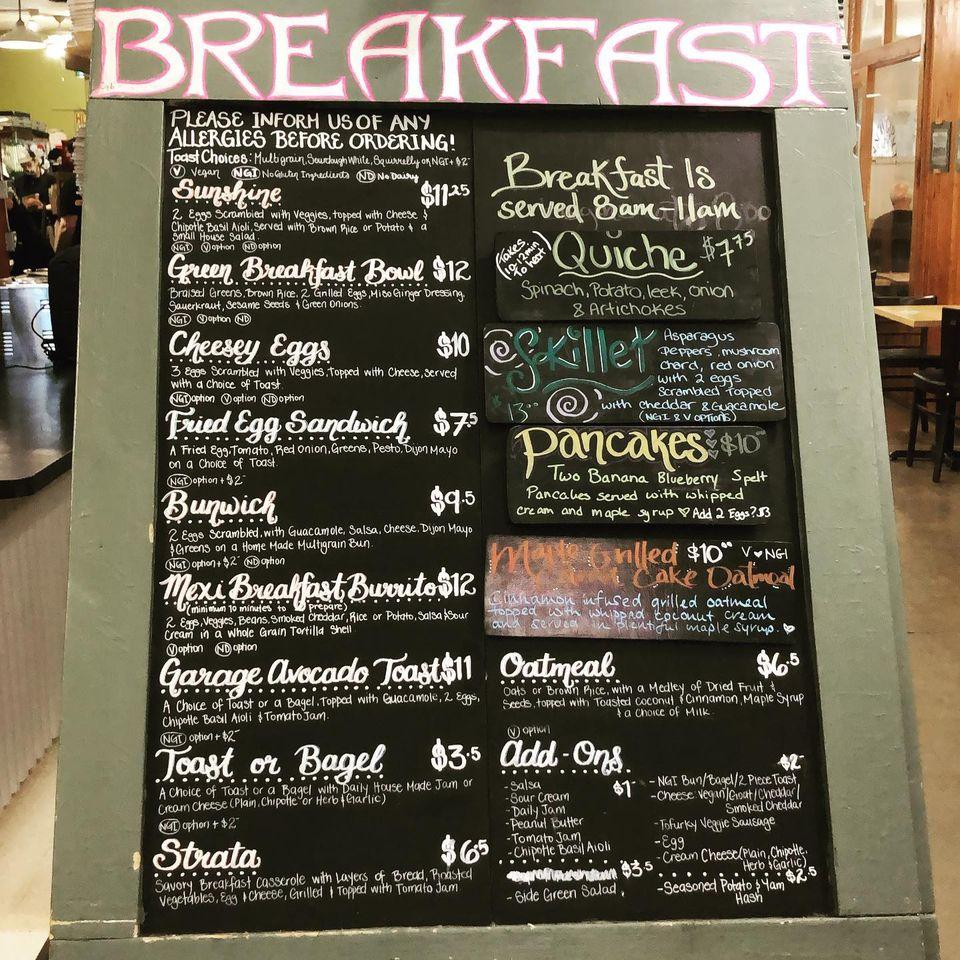 BREAKFAST
PLEASE INFORM US OF ANY
ALLERGIES BEFORE ORDERING!
Toast Choices: Multigrain, Sourdough White, Squirrelly or NGI +$2
V Vegan NGI No Gluten Ingredients ND No Dairy
Sunshine $11.25
2 Eggs Scrambled with Veggies, topped with Cheese &
Chipotle Basil Aioli, Served with Brown Rice or Potato & a
Small House Salad.
NGI V option ND option
Green Breakfast Bowl $12
Braised Greens, Brown Rice, 2 Grilled Eggs, Miso Ginger Dressing,
Sauerkraut, Sesame Seeds & Green Onions.
NGI V option ND
Cheesey Eggs $10
3 Eggs Scrambled with Veggies, topped with Cheese, Served
with a choice of Toast.
NGI option V option ND option
Fried Egg Sandwich $7.5
A Fried Egg, Tomato, Red Onion, Greens, Pesto, Dijon Mayo
on a Choice of Toast.
NGI option + $2
Bunwich $9.5
2 Eggs Scrambled, with Guacamole, Salsa, Cheese, Dijon Mayo
& Greens on a Home Made Multigrain Bun.
NGI option + $2 ND option
Mexi Breakfast Burrito $12
(minimum 10 minutes to prepare)
2 Eggs, Veggies, Beans, Smoked Cheddar, Rice or Potato, Salsa & Sour
Cream in a Whole Grain Tortilla Shell
V option ND option
Garage Avocado Toast $11
A Choice of Toast or a Bagel, Topped with Guacamole, 2 Eggs,
Chipotle Basil Aioli & Tomato Jam.
NGI option + $2
Toast or Bagel $3.5
A Choice of Toast or a Bagel with Daily House Made Jam or
Cream Cheese (Plain, Chipotle or Herb & Garlic)
NGI option + $2
Strata $6.5
Savory Breakfast Casserole with Layers of Bread, Roasted
Vegetables, Egg & Cheese, Grilled & Topped with Tomato Jam
Breakfast Is
served 8am-11am
(Takes
10-12 min
to heat)
Quiche $7.75
Spinach, Potato, leek, onion
& Artichokes
Skillet
13.00
Asparagus
Peppers, mushroom
chard, red onion
with 2 eggs
Scrambled topped
with cheddar & Guacamole
(NGI & V OPTIONS)
Pancakes $10
Two Banana Blueberry Spelt
Pancakes served with whipped
cream and maple syrup ♡ Add 2 Eggs? $3
Maple Grilled $10 V ♥ NGI
Cake Oatmeal
Cinnamon infused grilled oatmeal
topped with whipped coconut cream
and served in plentiful maple syrup. ♥
Oatmeal $6.5
Oats or Brown Rice, with a Medley of Dried Fruit &
Seeds, topped with Toasted Coconut & Cinnamon, Maple Syrup
& a choice of Milk.
V option
Add-Ons
$1
- Salsa
- Sour Cream
- Daily Jam
- Peanut Butter
- Tomato Jam
- Chipotle Basil Aioli
$3.5
- Side Green Salad
$2
- NGI Bun/Bagel/2 Piece Toast
- Cheese Vegan/Goat/Cheddar/
Smoked Cheddar
- Tofurky Veggie Sausage
- Egg
- Cream Cheese (Plain, Chipotle,
Herb & Garlic)
$2.5
- Seasoned Potato & Yam
Hash